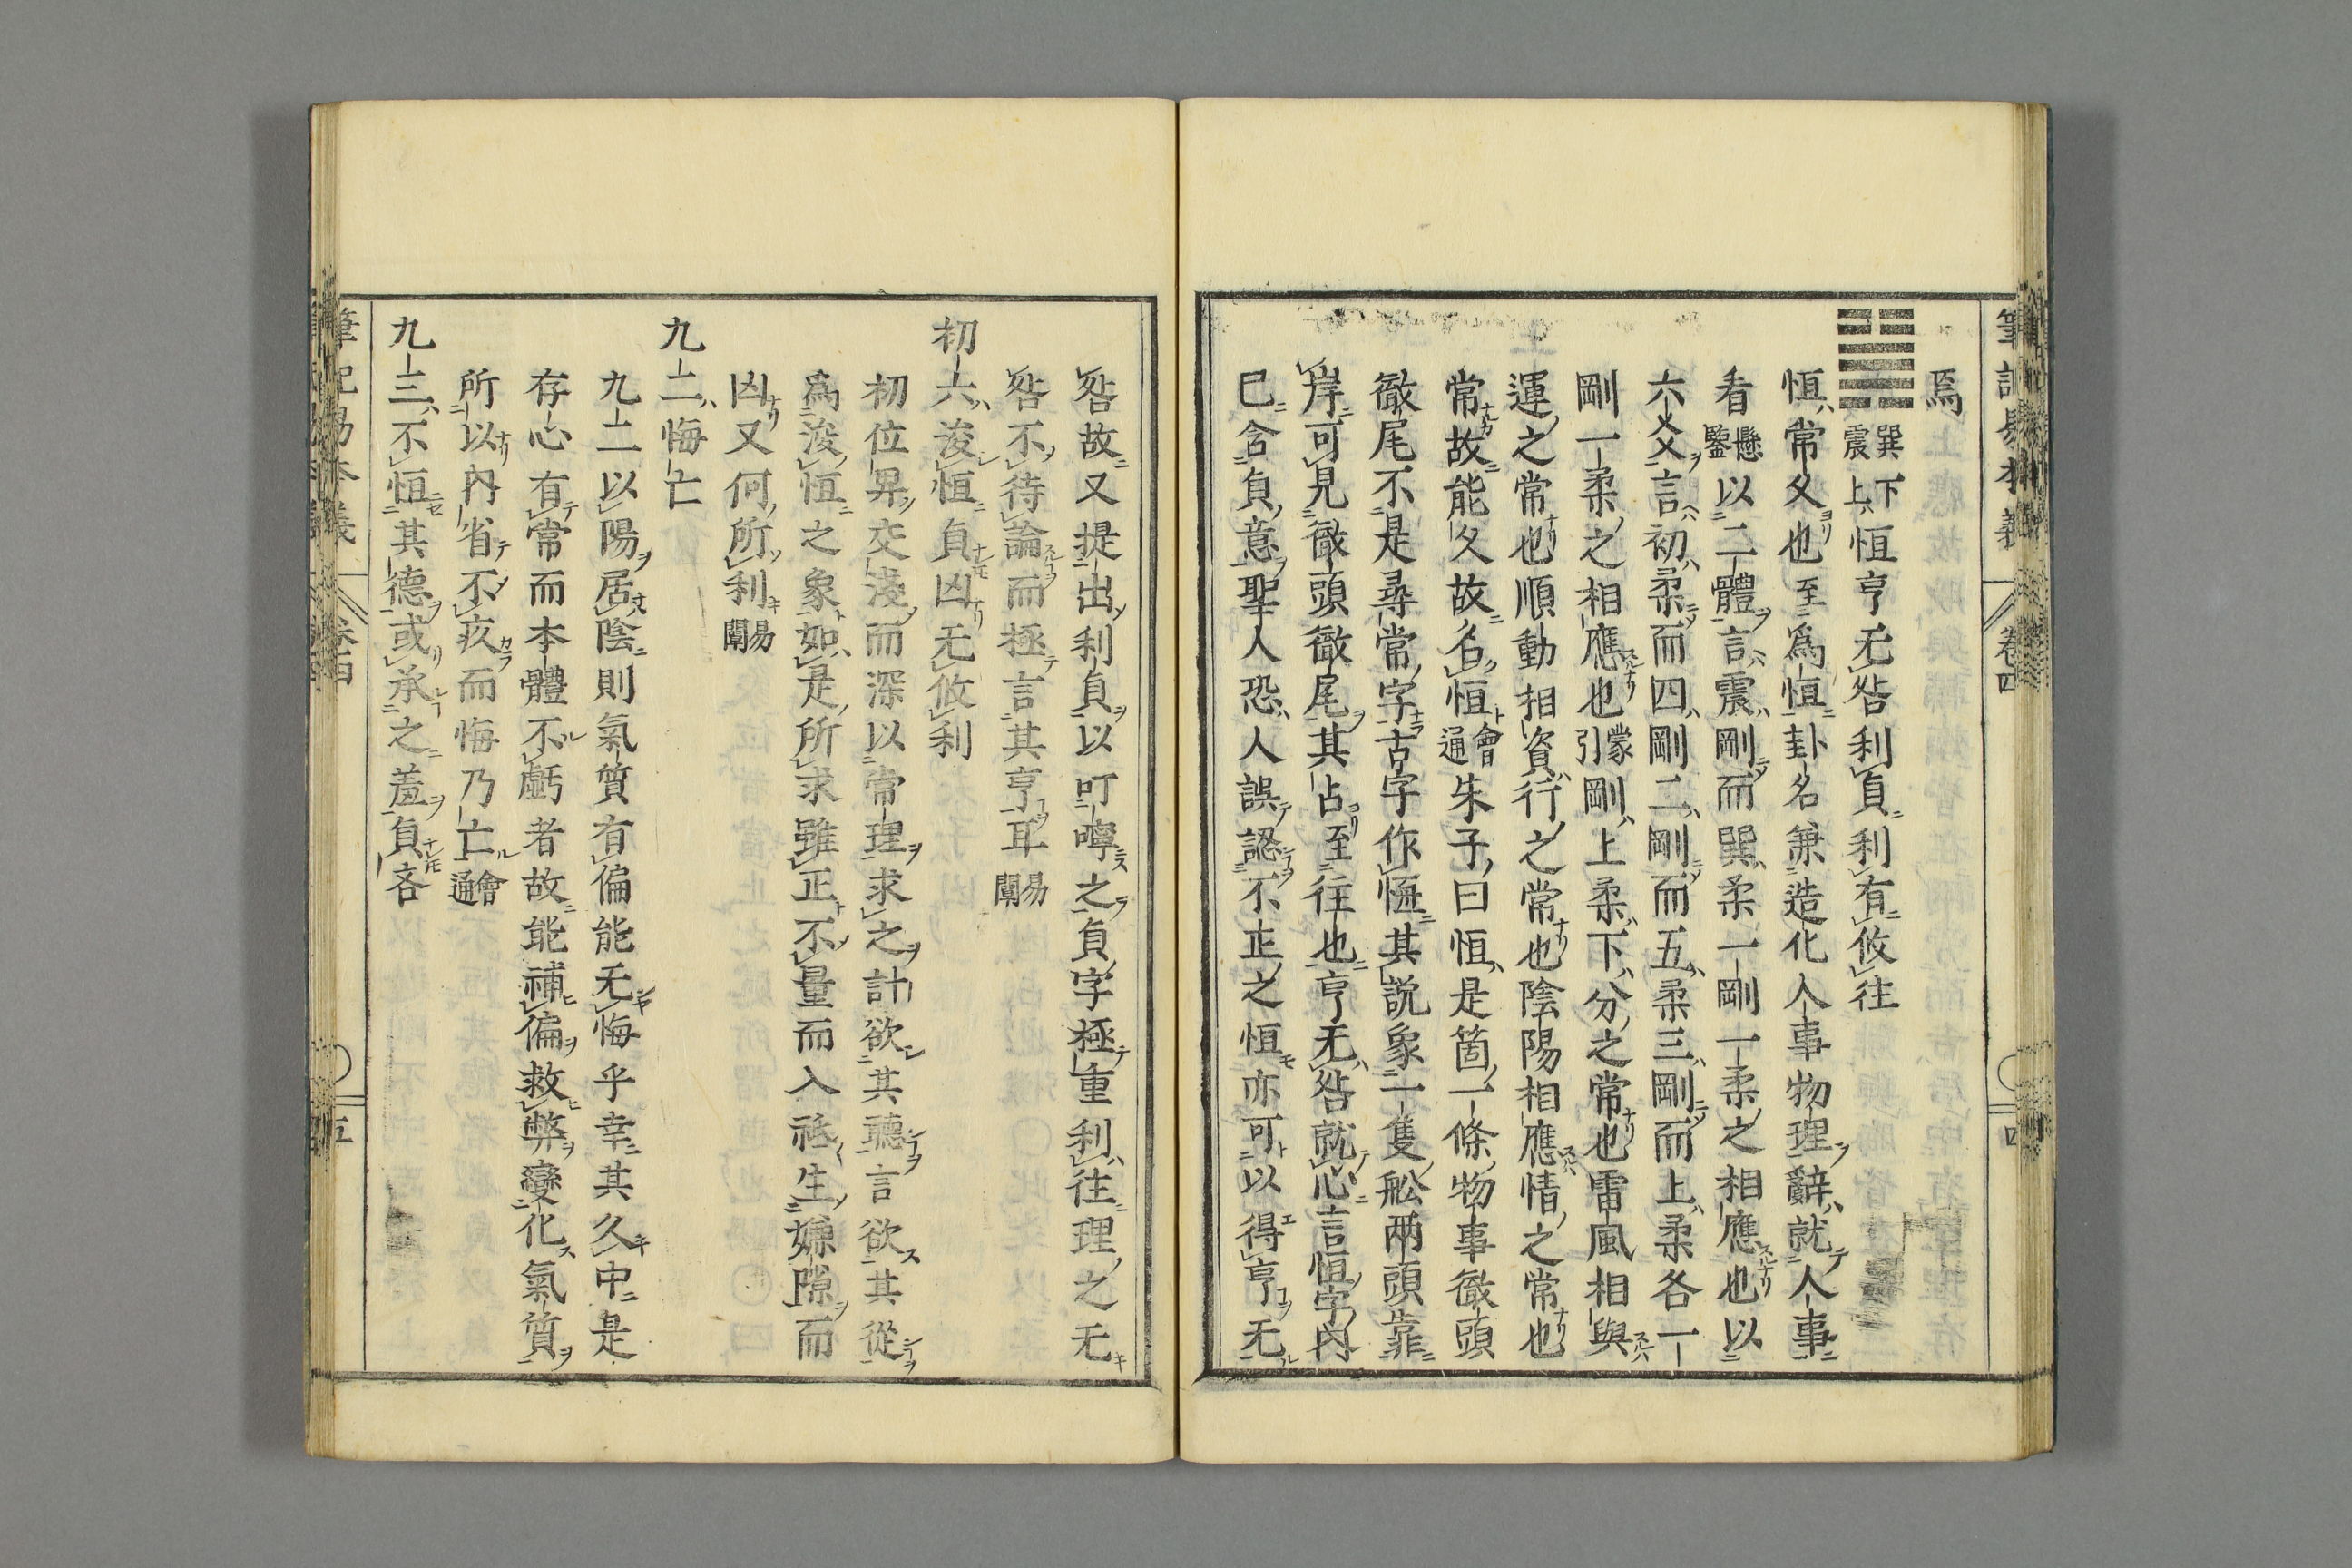 筆記易本義
卷四
四
焉
巽下震上恒亨无咎利貞利有攸往
恒常久也至爲恒卦名兼造化人事物理辭就人事
看懸鑒以二體言震剛而巽柔一剛一柔之相應也以
六爻言初柔而四剛二剛而五柔三剛而上柔各一
剛一柔之相應也蒙引剛上柔下分之常也雷風相與
運之常也順動相資行之常也陰陽相應情之常也
常故能久故名恒會通朱子曰恒是箇一條物事徹頭
徹尾不是尋常字古字作恆其說象一隻舩兩頭靠
岸可見徹頭徹尾其占至往也亨无咎就心言恒字內
已含貞意聖人恐人誤認不正之恒亦可以得亨无
咎故又提出利貞以叮嚀之貞字極重利往理之无
咎不待論而極言其亨耳易闡
初六浚恒貞凶无攸利
初位卑交淺而深以常理求之計欲其聽言欲其從
爲浚恒之象如是所求雖正不量而入祗生嫌隙而
凶又何所利易闡
九二悔亡
九二以陽居陰則氣質有偏能无悔乎幸其久中是
存心有常而本體不虧者故能補偏救弊變化氣質
所以內省不疚而悔乃亡會通
九三不恒其德或承之羞貞吝
筆記易本義
卷四
五